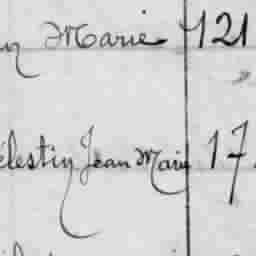 Marie 121
élestin Jean Marie 17